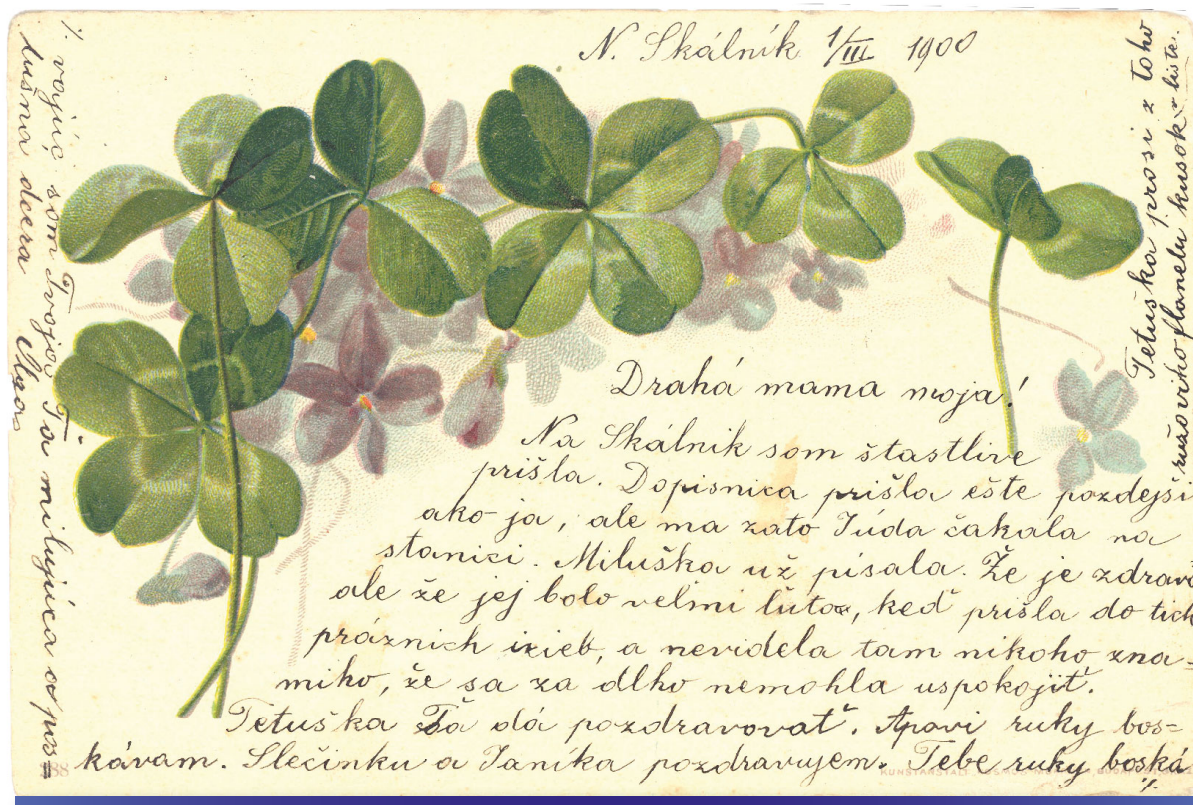 N. Skálnik 1/III 1900
Drahá mama moja!
Na Skálnik som štastlive
prišla. Dopisnica prišla ešte pozdejši
ako ja, ale ma zato Júda čakala na
stanici. Miluška už písala. Že je zdravá
ale že jej bolo velmi lúto, keď prišla do tich
práznich izieb, a nevidela tam nikoho zná-
miho, že sa za dlho nemohla uspokojiť.
Tetuška Ťa dá pozdravovať. Apovi ruky bos-
kávam. Slečinku a Janíka pozdravujem. Tebe ruky boská
./.
./. vajúc som Tvojou Ťa milujúca a po-
slušna dcera
Tetuška prosi z toho
ružoviho flanelu kusok v liste.